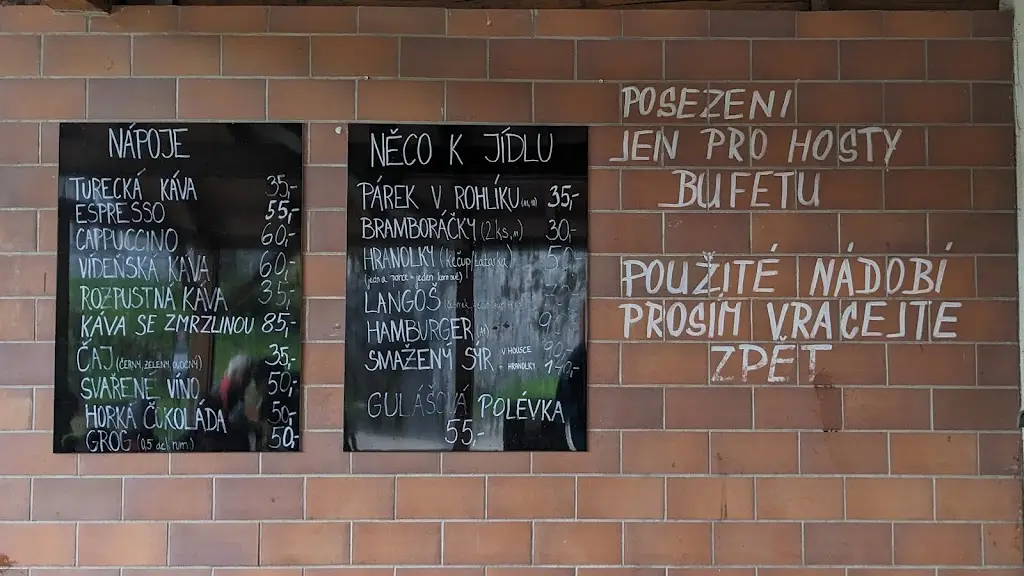 NÁPOJE
TURECKÁ KÁVA 35,-
ESPRESSO 55,-
CAPPUCCINO 60,-
VÍDEŇSKÁ KÁVA 60,-
ROZPUSTNÁ KÁVA 35,-
KÁVA SE ZMRZLINOU 85,-
ČAJ (ČERNÝ, ZELENÝ, OVOCNÝ) 35,-
SVAŘENÉ VÍNO 50,-
HORKÁ ČOKOLÁDA 50,-
GROG (0,5 dcl rum) 50,-
NĚCO K JÍDLU
PÁREK V ROHLÍKU 35,-
BRAMBORÁČKY (2 ks, 30,-
HRANOLKY (kečup, tatarka)
LANGOŠ
HAMBURGER
SMAŽENÝ SÝR - V HOUSCE
- HRANOLKY
GULÁŠOVÁ POLÉVKA
55,-
POSEZENI
JEN PRO HOSTY
BUFETU
POUŽITÉ NÁDOBÍ
PROSÍM VRACEJTE
ZPĚT